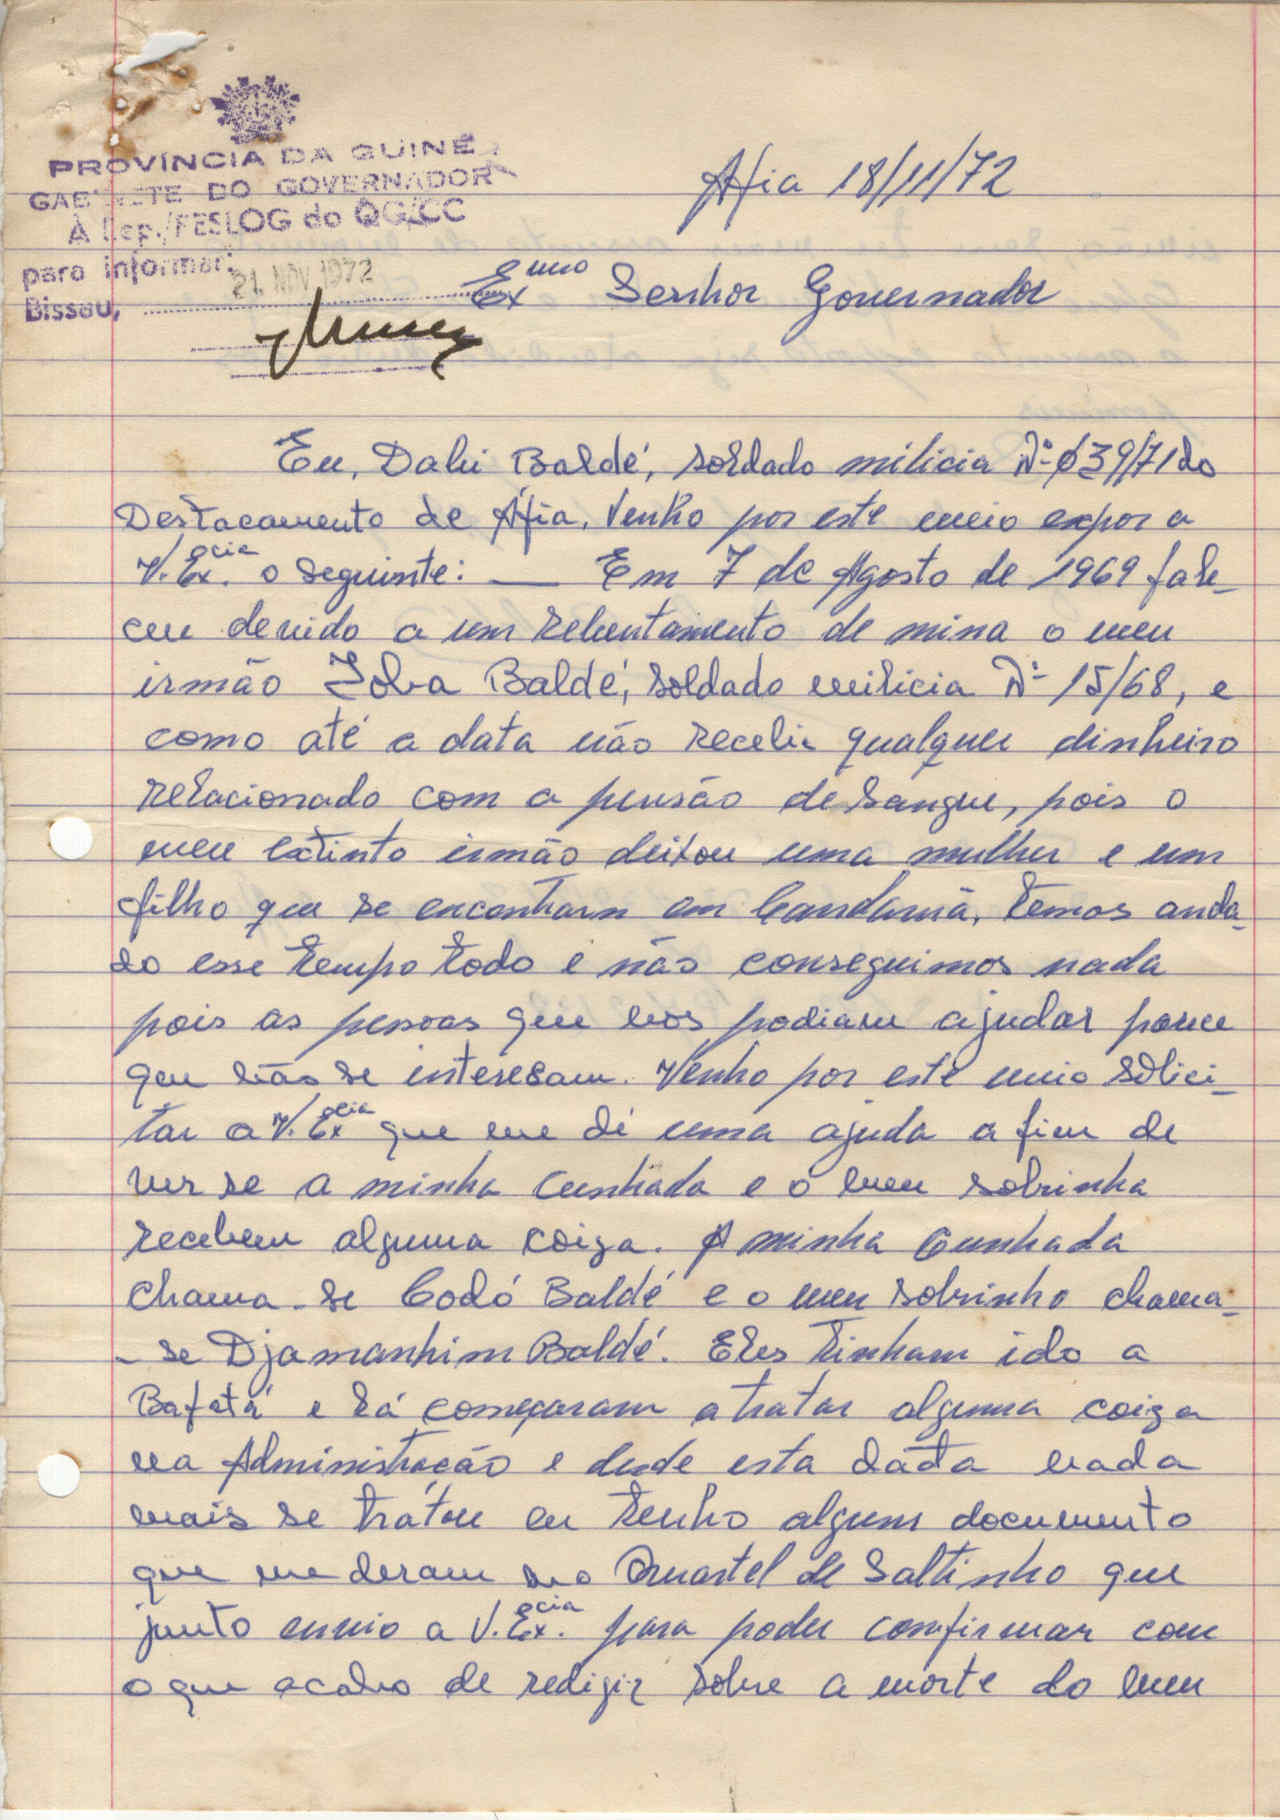 PROVÍNCIA DA GUINÉ
GABINETE DO GOVERNADOR
À Rep./FESLOG do QG/CC
para informar.
21. NOV. 1972
Bissau,
Afia 18/11/72
Exmo Senhor Governador
Eu, Dahi Baldé, soldado milicia Nº 039/71 do
Destacamento de Áfia, Venho por este meio expor a
V. Excia. o seguinte: — Em 7 de Agosto de 1969 fale-
ceu devido a um rebentamento de mina o meu
irmão Ioba Baldé, soldado milicia Nº 15/68, e
como até a data não recebi qualquer dinheiro
relacionado com a pensão de sangue, pois o
meu extinto irmão deixou uma mulher e um
filho que se encontram em Candamã, temos anda-
do esse tempo todo e não conseguimos nada
pois as pessoas que nos podiam ajudar parece
que não se interesam. Venho por este meio solici-
tar a V. Excia que me dê uma ajuda a fim de
ver se a minha Cunhada e o meu sobrinha
recebem alguma coiza. A minha Cunhada
chama-se Codó Baldé e o meu sobrinho chama-
-se Djamanhim Baldé. Eles tinham ido a
Bafatá e lá começaram a tratar alguma coiza
na Administração e desde esta data nada
mais se tratou eu tenho algum documento
que me deram no Quartel de Saltinho que
junto envio a V. Excia. para poder comfirmar com
o que acabo de redigir sobre a morte do meu